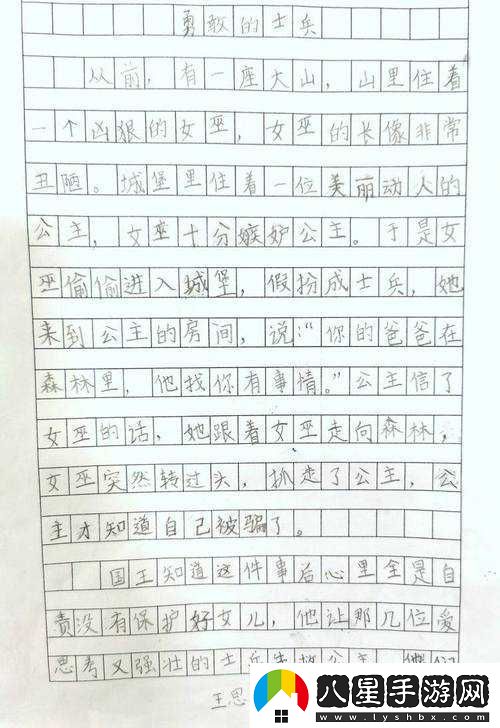 勇敢的士兵
从前，有一座大山，山里住着
一个凶狠的女巫，女巫的长像非常
丑陋。城堡里住着一位美丽动人的
公主，女巫十分嫉妒公主。于是女
巫偷偷进入城堡，假扮成士兵，她
来到公主的房间，说：“你的爸爸在
森林里，他找你有事情。”公主信了
女巫的话，她跟着女巫走向森林，
女巫突然转过头，抓走了公主，公
主才知道自己被骗了。
国王知道这件事后心里全是自
责没有保护好女儿，他让那几位爱
思考又强壮的士兵去救公主，他们
王思
八星手游网
www.lyshbx.com